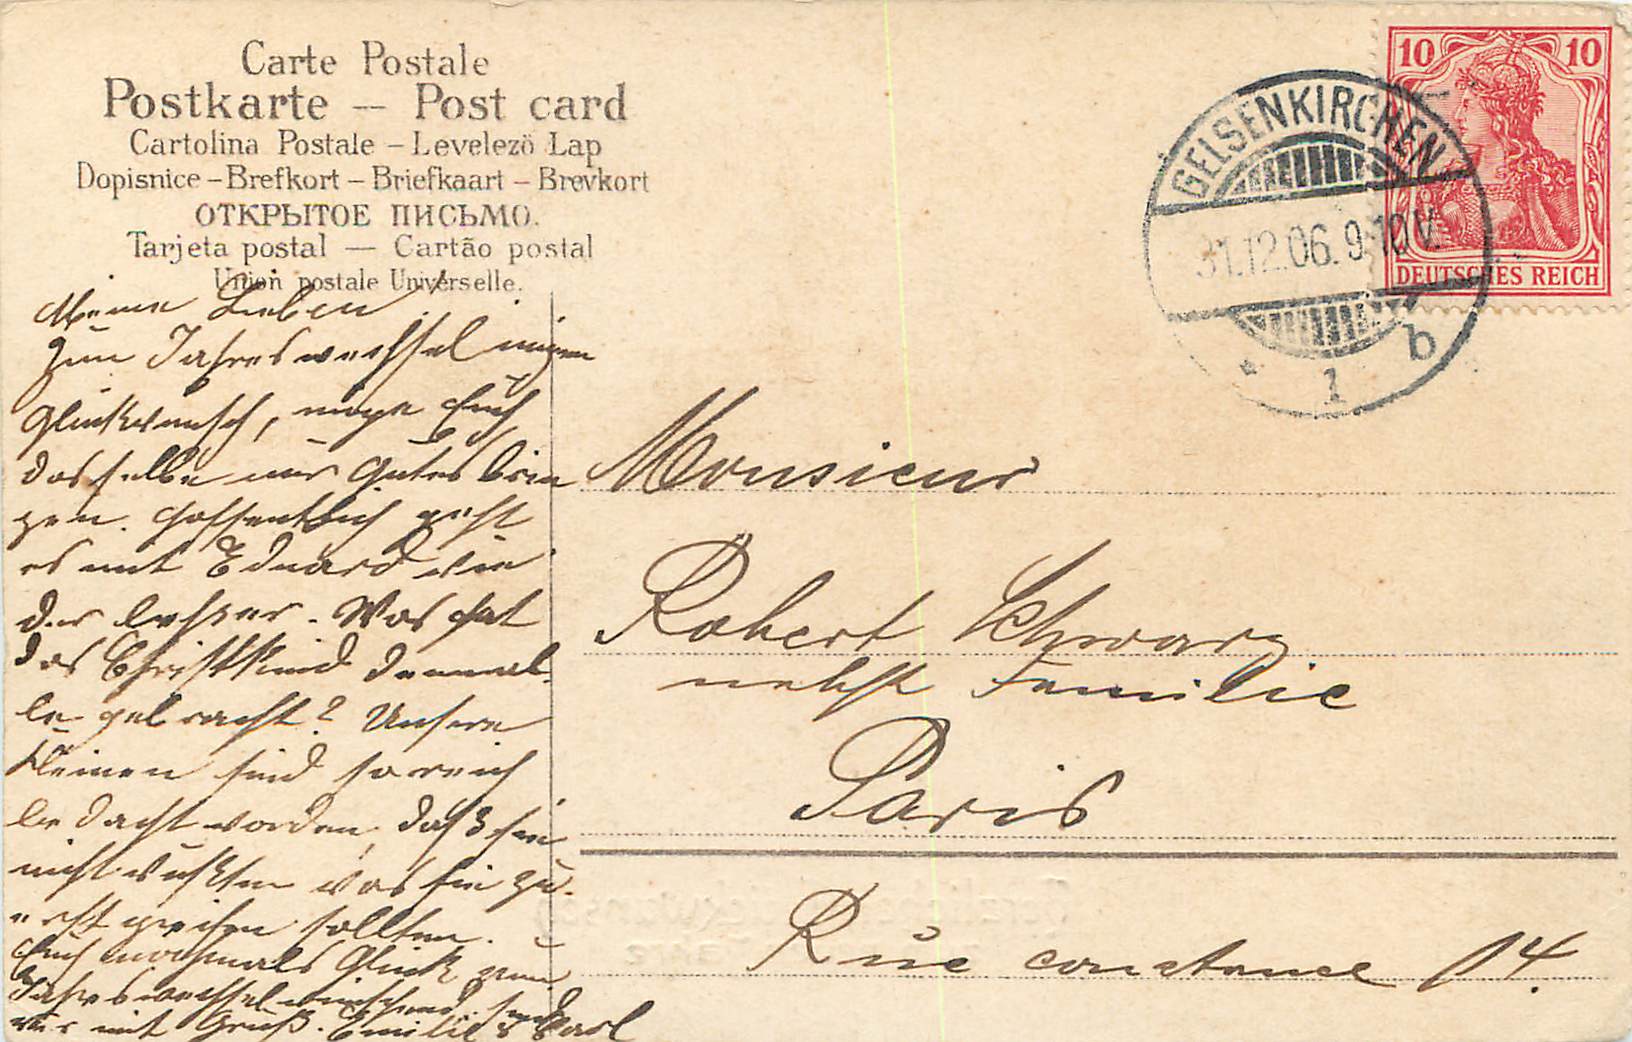 Carte Postale
Postkarte — Post card
Cartolina Postale – Levelező Lap
Dopisnice – Brefkort – Briefkaart – Brevkort
ОТКРЫТОЕ ПИСЬМО.
Tarjeta postal — Cartão postal
Union postale Universelle.
10 10
DEUTSCHES REICH
GELSENKIRCHEN
31.12.06. 9-10V.
* 1 b
Meine Lieben!
Zum Jahreswechsel innigen
Glückwunsch, möge Euch
dasselbe nur Gutes brin
gen. Hoffentlich geht
es mit Eduard wie
der besser. Was hat
das Christkind denn al
le gebracht? Unsere
Kleinen sind so reich
bedacht worden, daß sie
nicht wußten was sie zu-
erst greifen sollten.
Euch nochmals Glück zum
Jahreswechsel wünschend, sind
wir mit Gruß. Emilie & Carl
Monsieur
Robert Schwarz
nebst Familie
Paris
Rue constance 14.
Herzlichen Glückwunsch